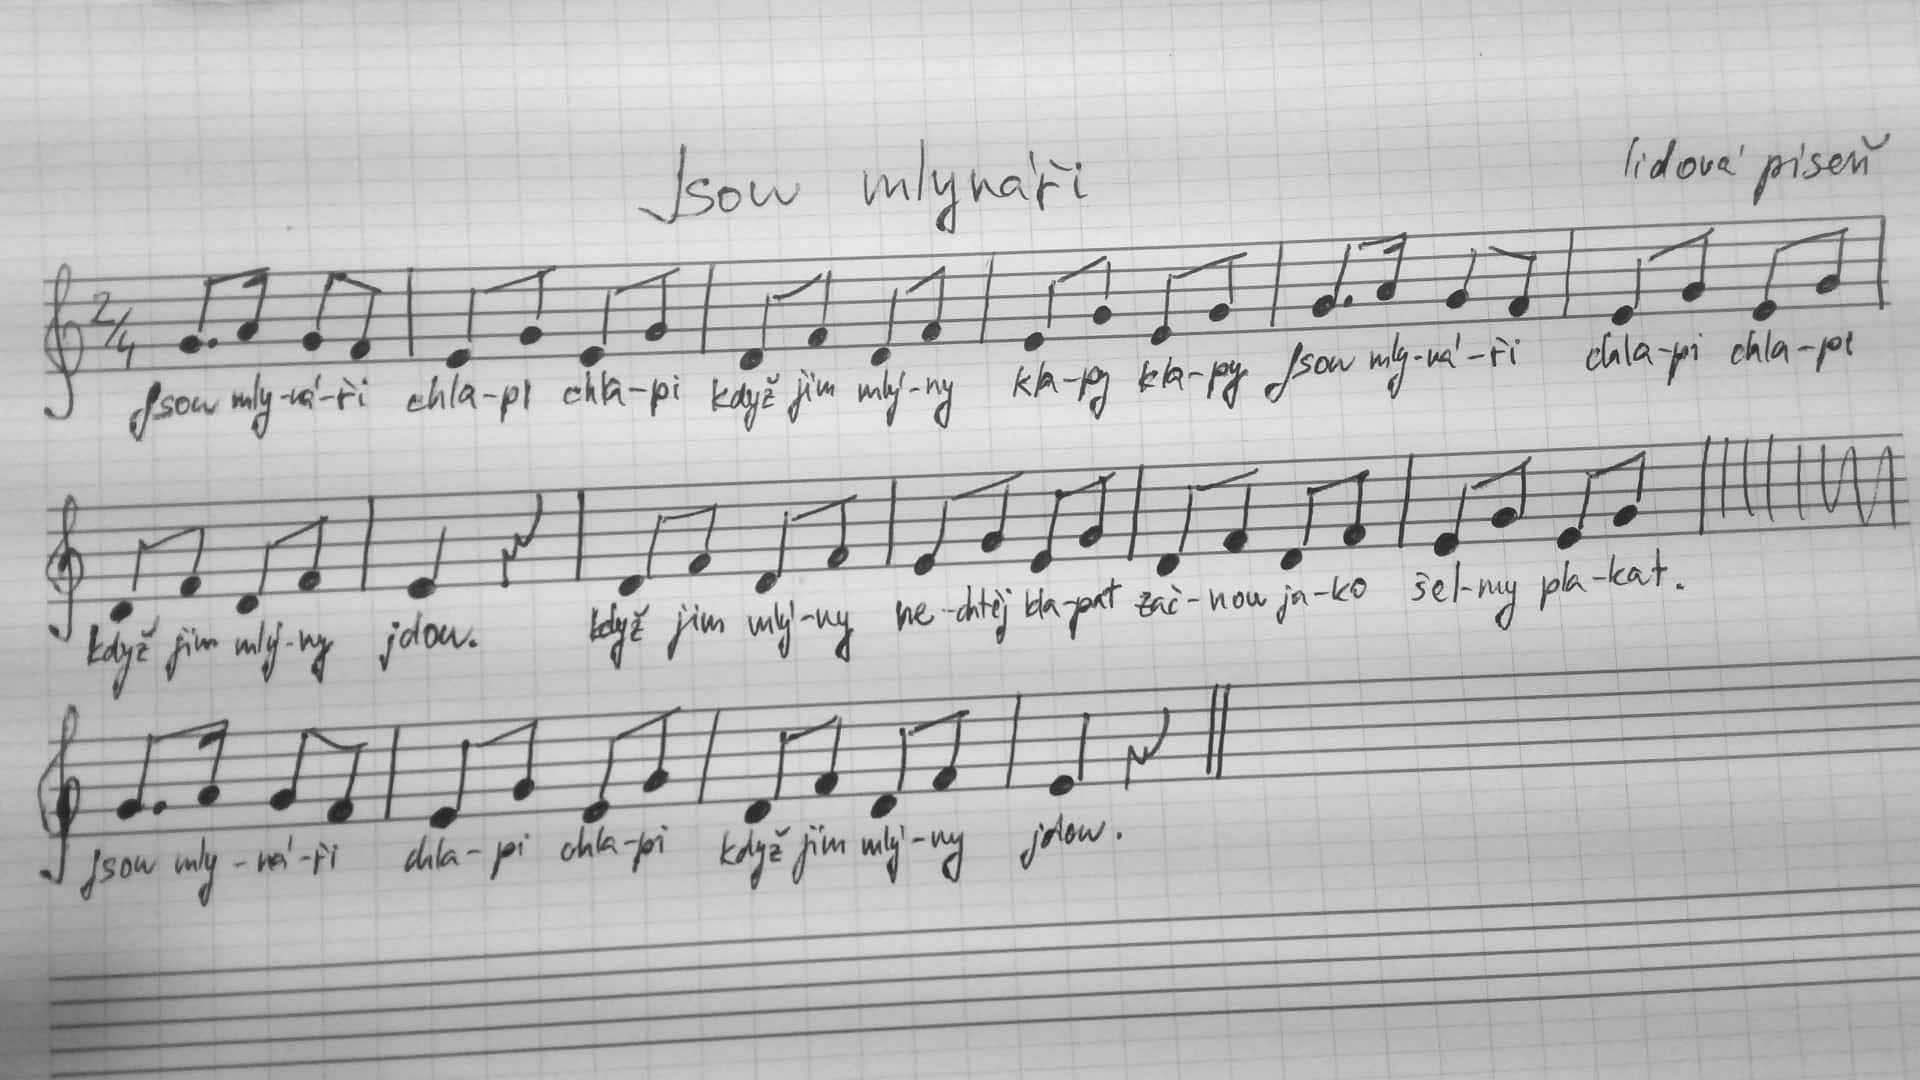 Jsou mlynáři
lidová píseň
2/4
Jsou mly-ná-ři chla-pi chla-pi když jim mlý-ny kla-py kla-py Jsou mly-ná-ři chla-pi chla-pi
když jim mlý-ny jdou. když jim mlý-ny ne-chtěj kla-pat zač-nou ja-ko šel-my pla-kat.
Jsou mly-ná-ři chla-pi chla-pi když jim mlý-ny jdou.